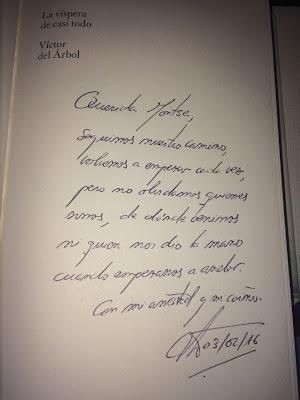 La víspera
de casi todo
Víctor
del Árbol
Querida Montse,
Seguimos nuestro camino,
volvemos a empezar cada vez,
pero no olvidamos quienes
somos, de dónde venimos
ni quien nos dio la mano
cuando empezamos a andar.
Con mi amistad y mi cariño.
03/02/16